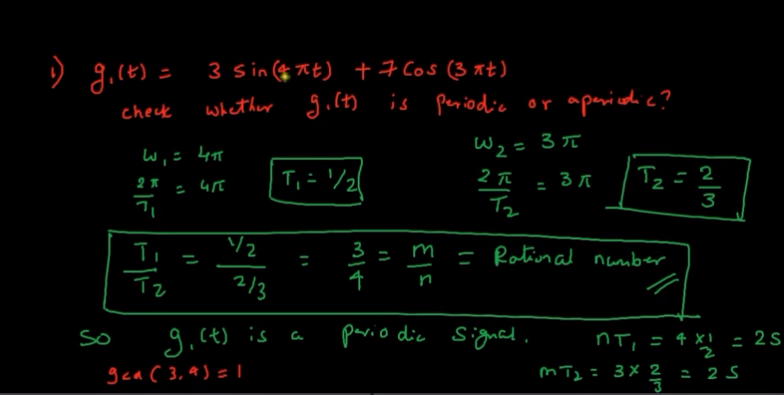 1) g₁(t) = 3 sin(4πt) + 7 cos(3πt)
check whether g₁(t) is periodic or aperiodic?
ω₁ = 4π
2π/T₁ = 4π
T₁ = 1/2
ω₂ = 3π
2π/T₂ = 3π
T₂ = 2/3
T₁/T₂ = (1/2)/(2/3) = 3/4 = m/n = Rational number
so g₁(t) is a periodic signal.
gcd(3,4) = 1
nT₁ = 4 × 1/2 = 2S
mT₂ = 3 × 2/3 = 2S